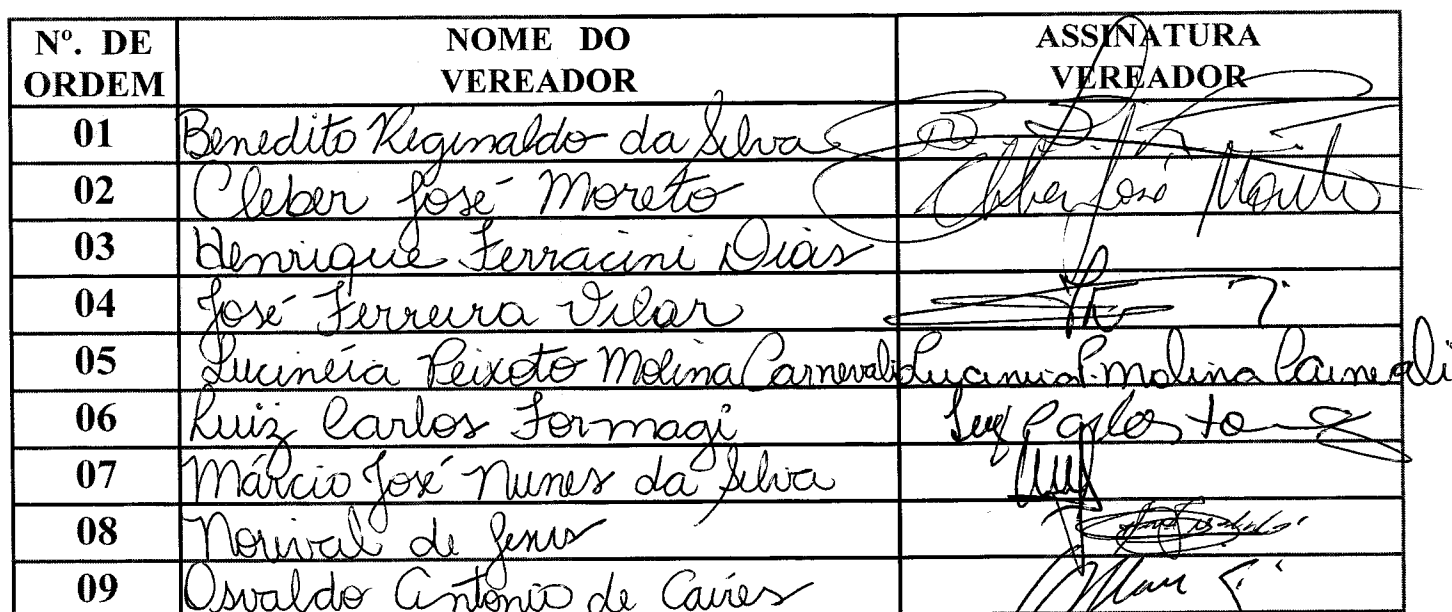 Nº. DE ORDEM NOME DO VEREADOR ASSINATURA VEREADOR
01 Benedito Reginaldo da Silva
02 Cleber José Moreto Cleber José Moreto
03 Henrique Ferracini Dias
04 José Ferreira Vilar
05 Lucinéia Peixoto Molina Carnevali Lucineia P. Molina Carnevali
06 Luiz Carlos Formagi Luiz Carlos Fo
07 Márcio José Nunes da Silva
08 Norival de Jesus
09 Osvaldo Antonio de Caires